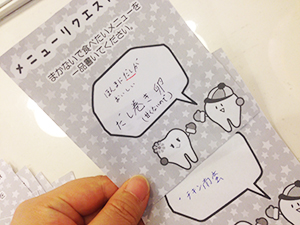 メニューリクエスト
まかないで食べたいメニューを
一品書いてください。
ほんまにだしが
おいしい
だし巻き卵
(甘くないやつ)
・チキン南蛮